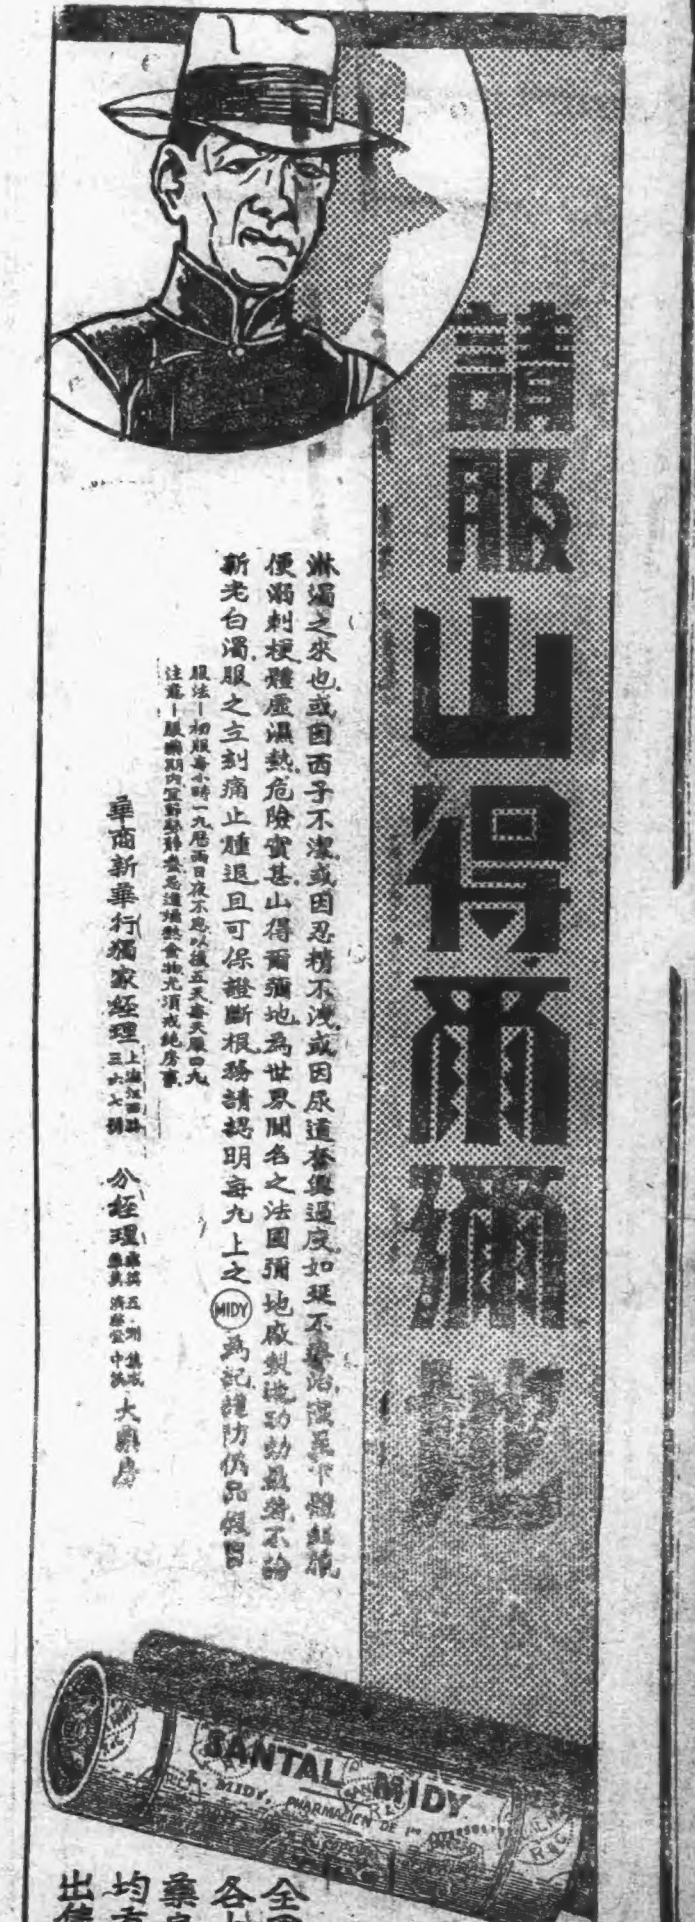 請服山得爾彌地
淋濁之來也或因西子不潔或因忍精不洩或因尿道奮興過度如延不學治腫下體紅腫
便溺刺梗體虛濕熱危險實甚山得爾彌地為世界聞名之法國彌地廠製功効最著不論
新老白濁服之立刻痛止腫退且可保證斷根務請認明每九上之MIDY為記謹防偽品假冒
服法－初服每小時一九歷兩日夜不息以後五天每天服四九
注意－服藥期內宜節尤須戒絕房事
華商新華行獨家經理 上海江西路三六七號 分經理 五洲 集成 濟 中法 大藥房
SANTAL MIDY
MIDY, PHARMACIEN DE 1re
全
各
藥
均
出